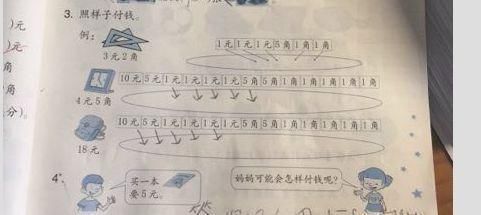 )元
3. 照样子付钱。
)元
例:
1元 1元 1元 5角 1角 1角
3元2角
角
角
10元 5元 1元 1元 1元 1元 5角 5角 1角 1角 1角 1角 1角
4元5角
分)。
10元 5元 1元 1元 1元 1元 5角 5角 1角 1角 1角 1角 1角
18元
4.
买一本
要5元。
妈妈可能会怎样付钱呢?